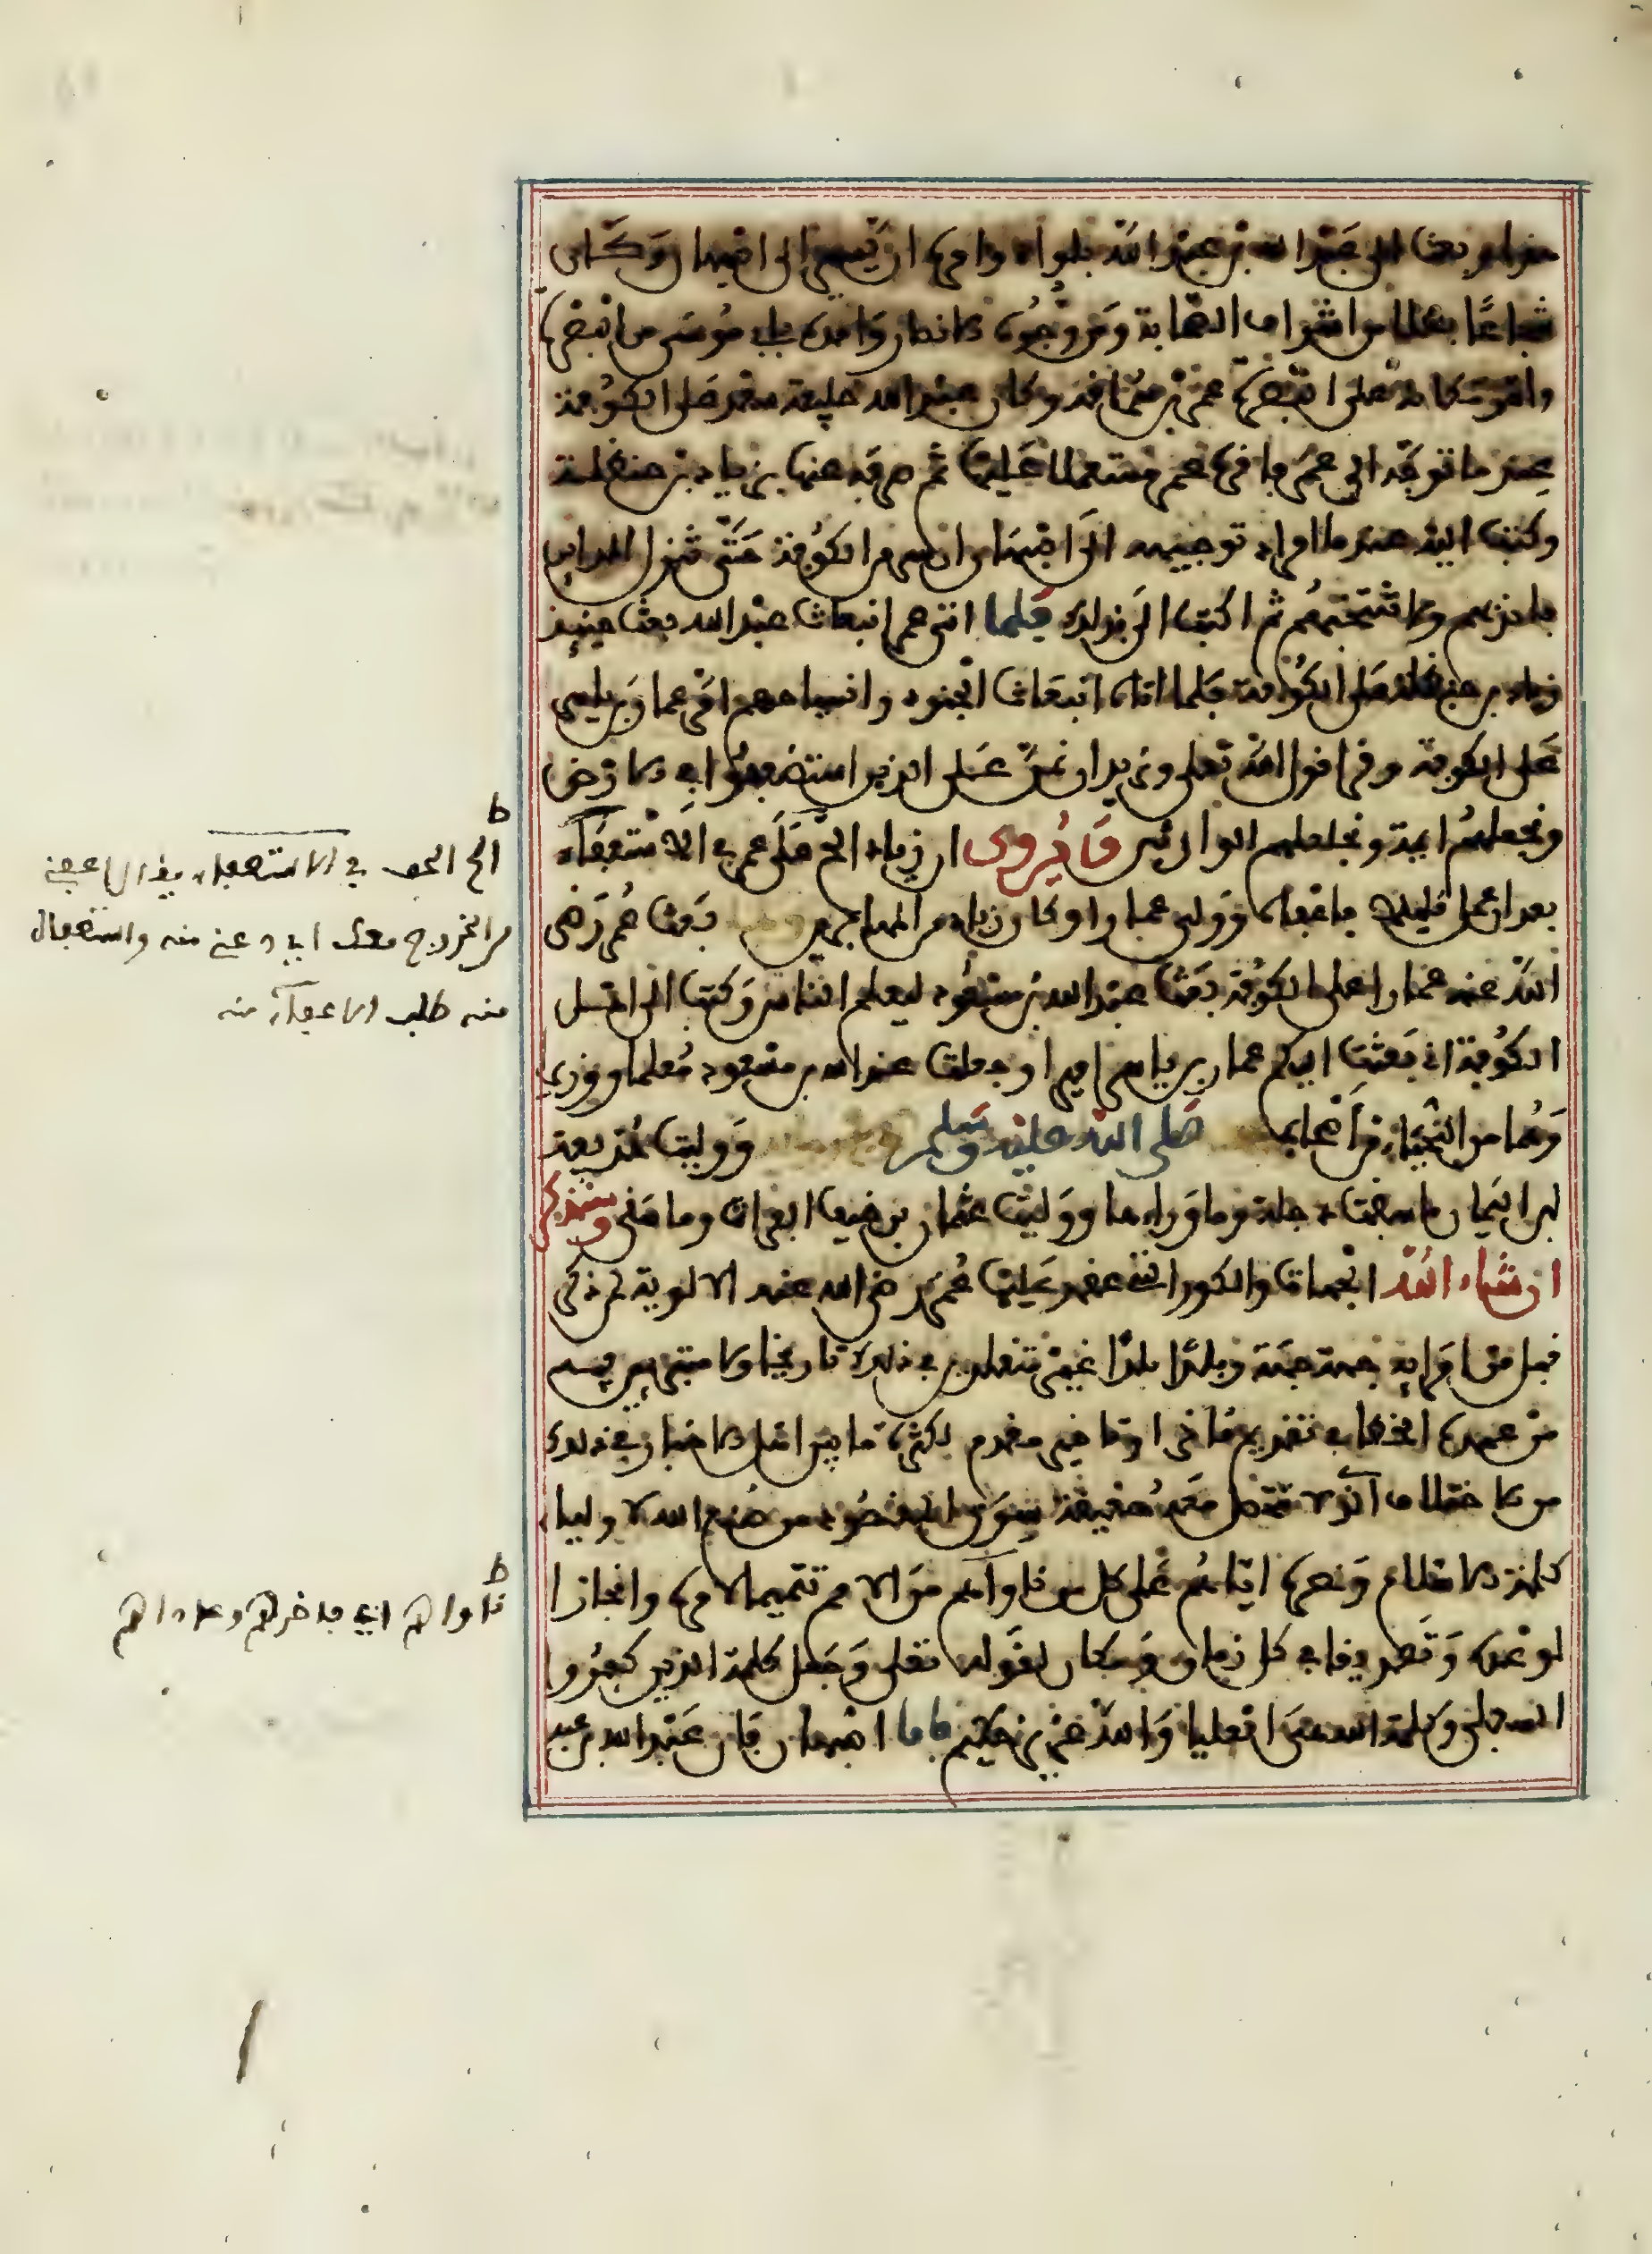 بعث الى عبد الله بن عبد الله بلواء وامره ان يسير الى اصبهان وكان
شجاعا بطلا من اشراف الصحابة ومن وجوه الانصار وامده بابي موسى من البصرة
وامر مكانه على البصرة عمر بن سراقة وكان عبد الله خليفة سعد على الكوفة
عند ما توجه الى عمر فاقره عمر مستعملا عليها ثم صرفه عنها بزياد بن حنظلة
وكتب اليه عند ما اراد توجيهه الى اصبهان ان سر من الكوفة حتى تنزل المداين
فاندبهم ولا تنتخبهم ثم اكتب الي بذلك فلما اتى عمر انبعاث عبد الله بعث حينيذ
زياد بن حنظلة على الكوفة فلما اتاه انبعاث الجنود وانسياحهم امر عمار بن ياسر
على الكوفة وقرا قول الله تعلى ونريد ان نمن على الذين استضعفوا في الارض
ونجعلهم ايمة ونجعلهم الوارثين وقد روى ان زياد الح على عمر في الاستعفاء
بعد ان عمل قليلا فاعفاه وولى عمارا وكان زياد من المهاجرين بعث عمر رضي
الله عنه عمارا على الكوفة بعث عبد الله بن مسعود ليعلم الناس وكتب الى اهل
الكوفة اني بعثت اليكم عمار بن ياسر اميرا وجعلت عبد الله بن مسعود معلما ووزيرا
وهما من النجباء من اصحاب صلى الله عليه وسلم ووليت حذيفة
بن اليمان ما سقت دجلة وما وراءها ووليت عثمان بن حنيف الفرات وما سقى وسنذكر
ان شاء الله الجهات والكور التي عقد عليها عمر رضي الله عنه الالوية لمن ذكر
قبل من امرايه جهة جهة وبلدا بلدا غير متعلمين في ذلك تاريخا ولا مبترين فيه
من عهدة الخطا في تقديم مؤخر او تاخير مقدم لكثرة ما بين اهل الاخبار في ذلك
من الاختلاف الذي لا تتحصل معه حقيقة سوى المقصود من صنع الله لاولياء
كلمة الاسلام ونصره اياهم على كل من ناواهم من الامم تتميما لامره وانجازا
لوعده وتصديقا في كل زمان ومكان لقوله تعلى وجعل كلمة الذين كفروا
السفلى وكلمة الله هي العليا والله عزيز حكيم فاما اصبهان فان عبد الله بن عبد
ط
الح الحف في الاستعفاء يقال اعفني
من الخروج معك اي دعني منه واستعفاه
منه طلب الاعفاء منه
ط
ناواهم اي فاخرهم وعاداهم